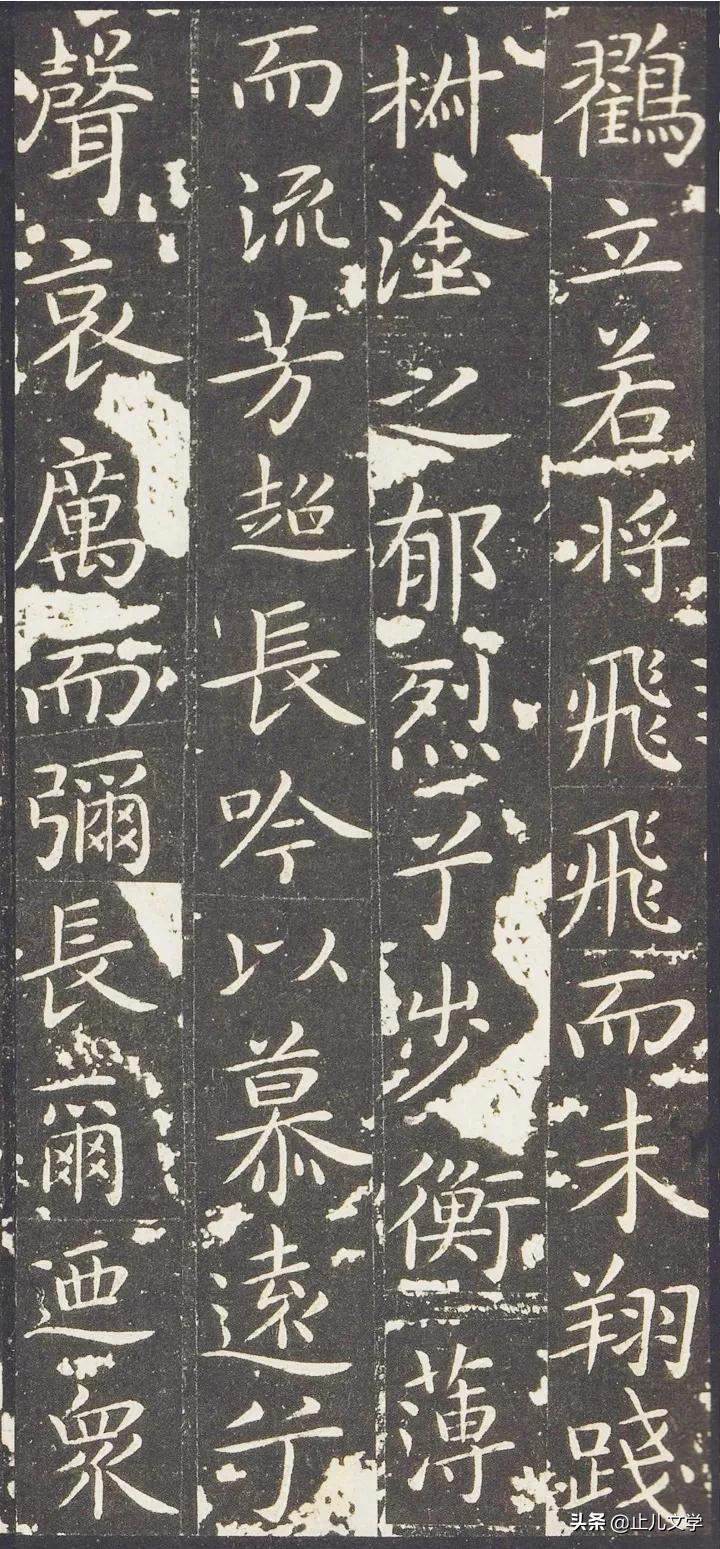 鶴立若将飛飛而未翔踐
椒塗之郁烈兮步衡薄
而流芳超長吟以慕遠兮
聲哀厲而彌長爾迺衆
头条 @止儿文学